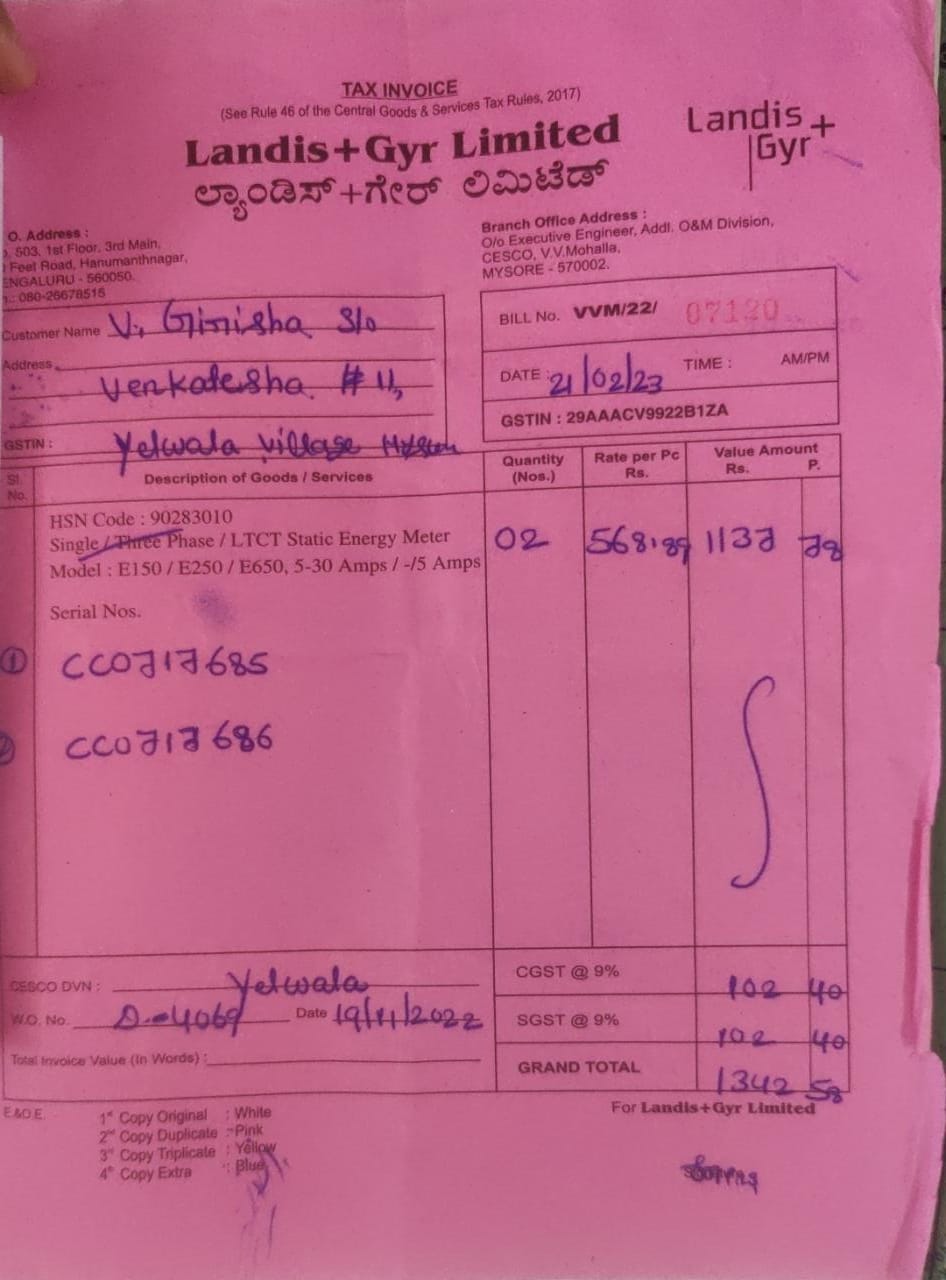 TAX INVOICE
(See Rule 46 of the Central Goods & Services Tax Rules, 2017)
Landis+Gyr Limited
ಲ್ಯಾಂಡಿಸ್+ಗೇರ್ ಲಿಮಿಟೆಡ್
Landis+
Gyr
O. Address :
503, 1st Floor, 3rd Main,
Feel Road, Hanumanthnagar,
ENGALURU - 560050.
: 080-26678515
Branch Office Address :
O/o Executive Engineer, Addl. O&M Division,
CESCO, V.V.Mohalla,
MYSORE - 570002.
Customer Name V. Girisha S/o
Address Venkatesha. # 11,
GSTIN : Yelwala Village Mysore
BILL No. VVM/22/ 07120
DATE : 21/02/23 TIME : AM/PM
GSTIN : 29AAACV9922B1ZA
Sl. No. Description of Goods / Services Quantity (Nos.) Rate per Pc Rs. Value Amount Rs. P.
HSN Code : 90283010
Single / Three Phase / LTCT Static Energy Meter 02 568.89 1137 78
Model : E150 / E250 / E650, 5-30 Amps / -/5 Amps
Serial Nos.
① CC0717685
② CC0717686
CESCO DVN : Yelwala
W.O. No. D-4069 Date 19/11/2022
Total Invoice Value (In Words) :
CGST @ 9% 102 40
SGST @ 9% 102 40
GRAND TOTAL 1342 58
E.&O.E.
1st Copy Original : White
2nd Copy Duplicate : Pink
3rd Copy Triplicate : Yellow
4th Copy Extra : Blue
For Landis+Gyr Limited